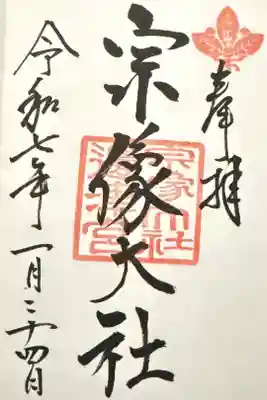 奉拝
宗像大社
宗像大社
令和七年一月二十四日